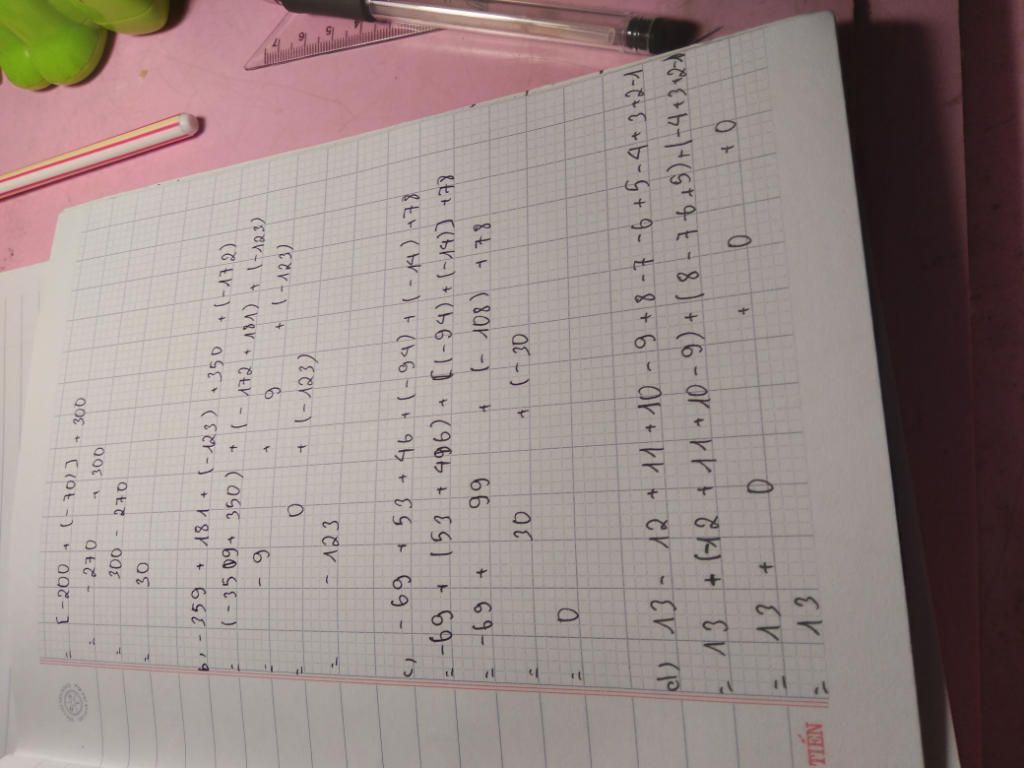 = [-200 + (-70)] + 300
= -270 + 300
= 300 - 270
= 30
b, -359 + 181 + (-123) + 350 + (-172)
= (-359 + 350) + (-172 + 181) + (-123)
= -9 + 9 + (-123)
= 0 + (-123)
= -123
c, -69 + 53 + 46 + (-94) + (-14) + 78
= -69 + (53 + 46) + [(-94) + (-14)] + 78
= -69 + 99 + (-108) + 78
= 30 + (-30
= 0
d) 13 - 12 + 11 + 10 - 9 + 8 - 7 - 6 + 5 - 4 + 3 + 2 - 1
= 13 + (-12 + 11 + 10 - 9) + (8 - 7 - 6 + 5) + (-4 + 3 + 2 - 1
= 13 + 0 + 0 + 0
= 13
TIẾN